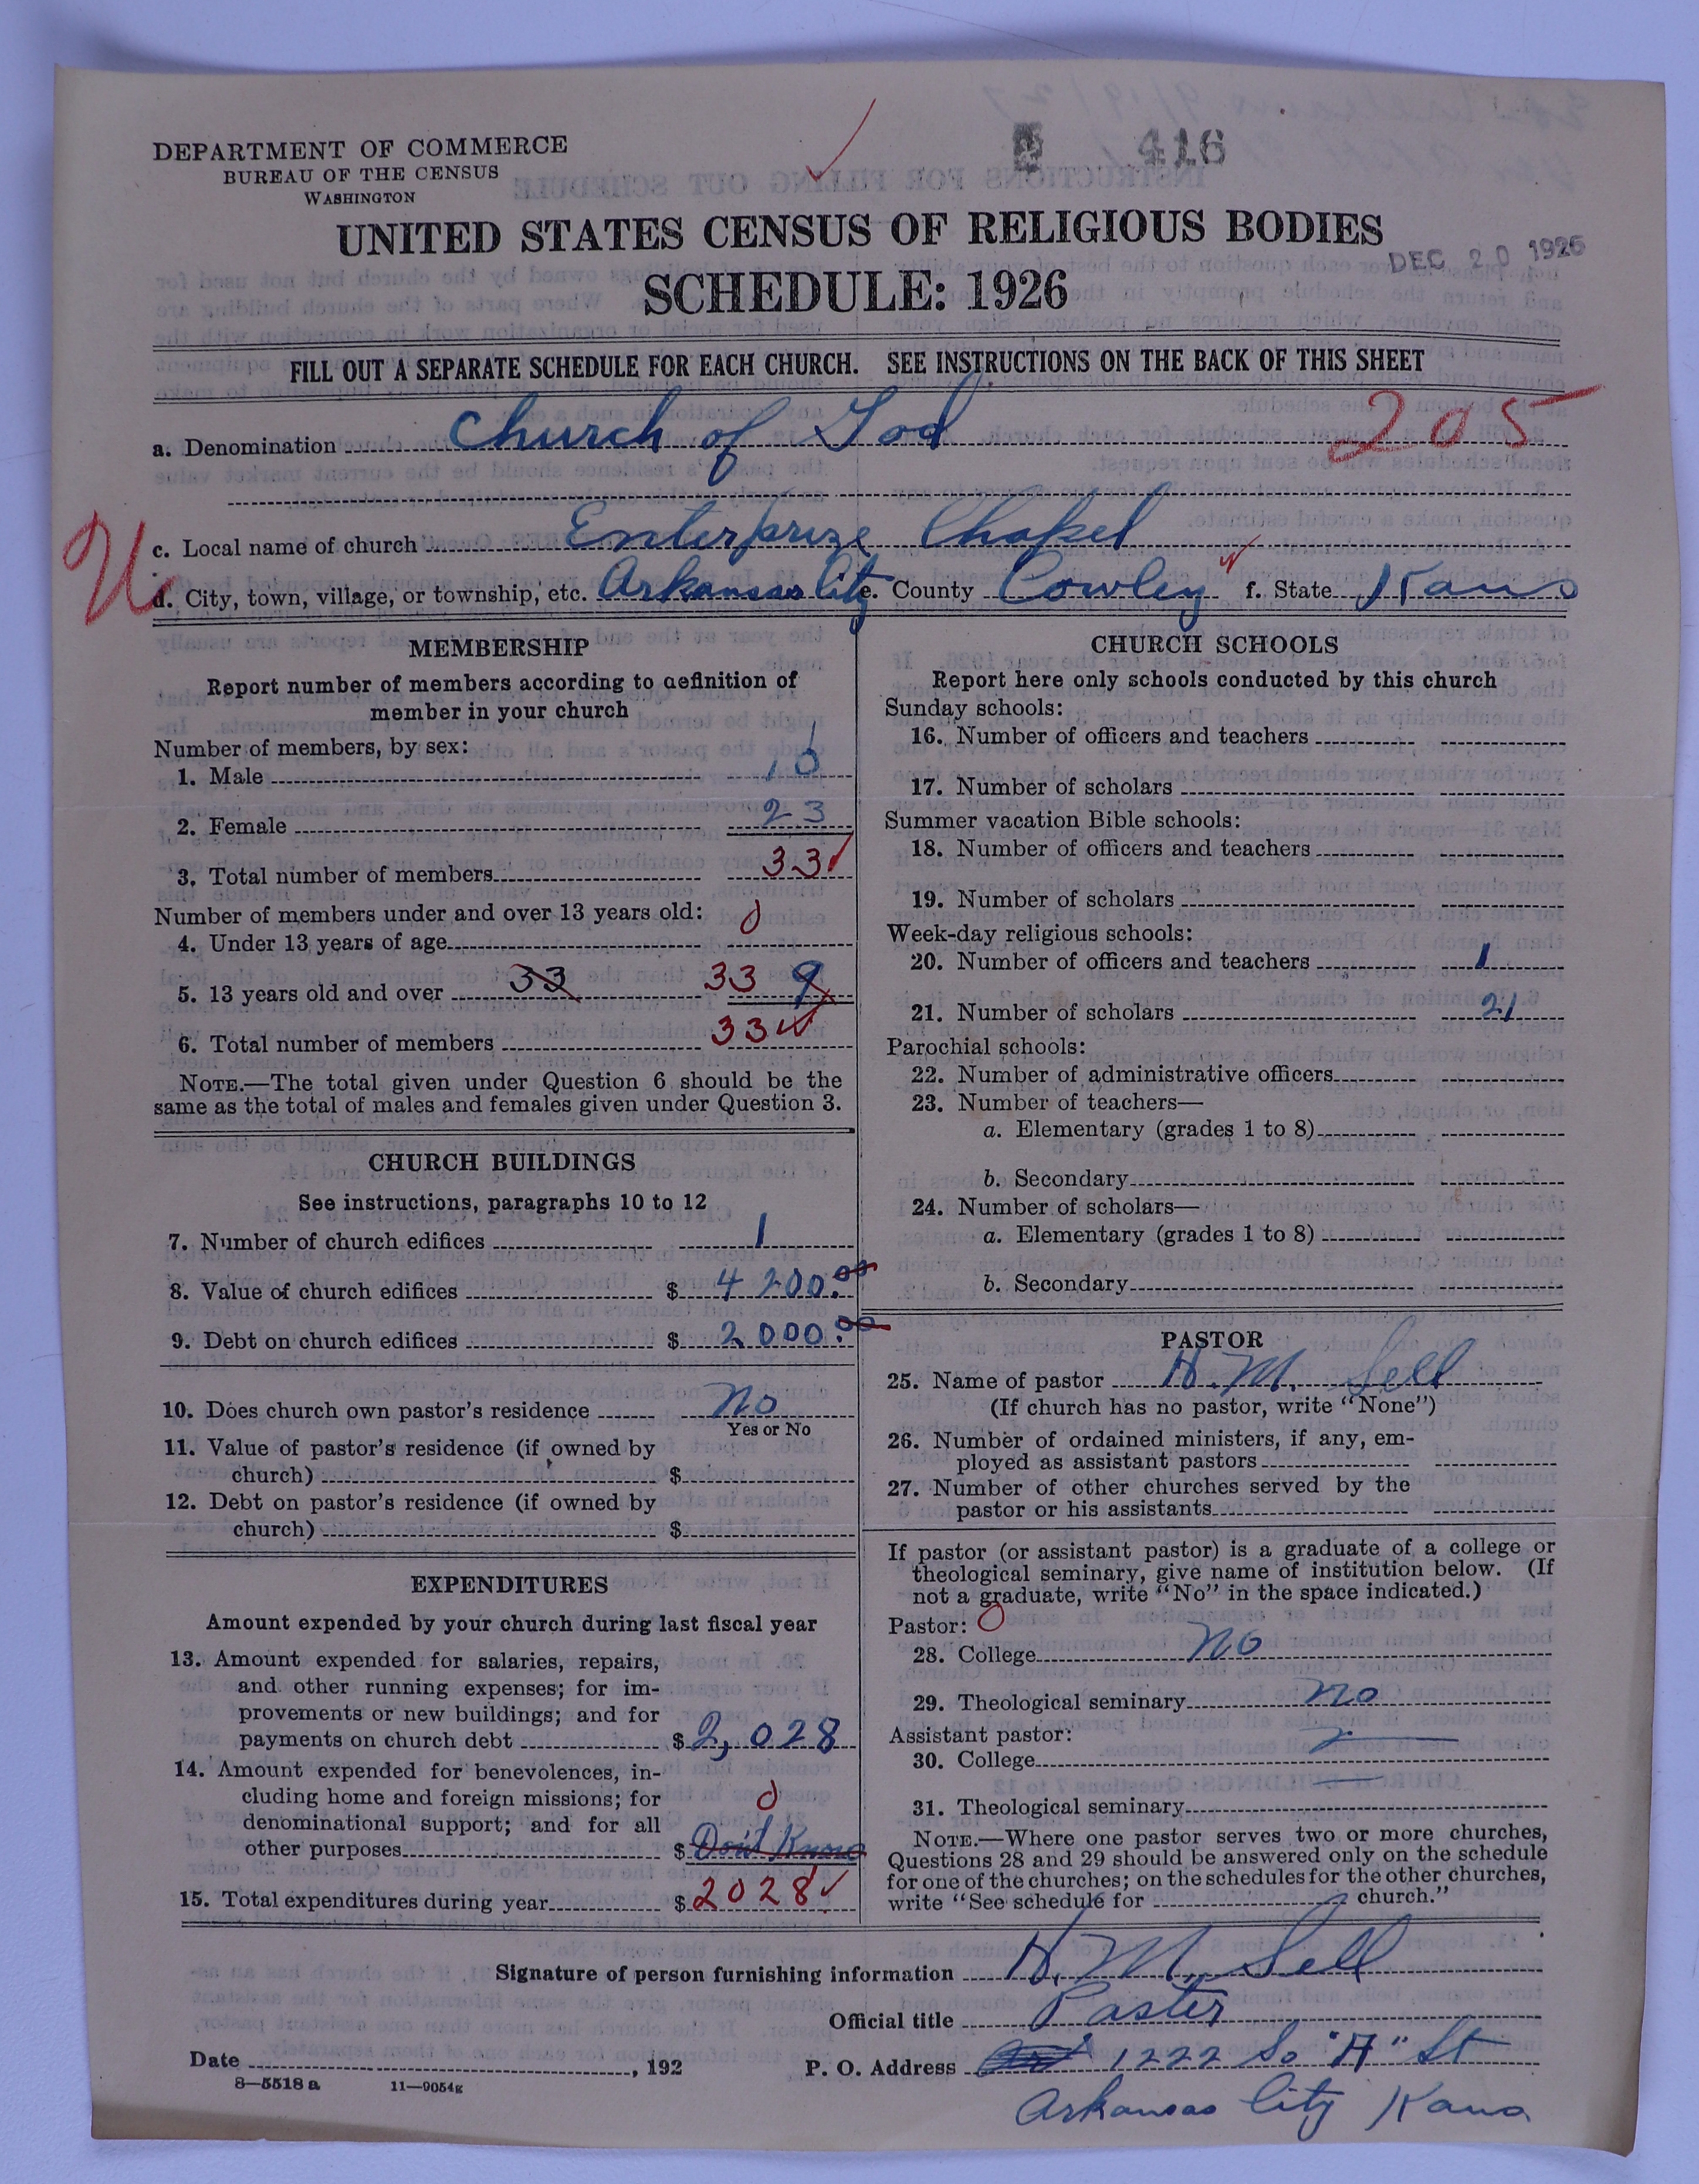 DEPARTMENT OF COMMERCE
BUREAU OF THE CENSUS
WASHINGTON
416
UNITED STATES CENSUS OF RELIGIOUS BODIES
SCHEDULE: 1926
DEC 20 1926
FILL OUT A SEPARATE SCHEDULE FOR EACH CHURCH. SEE INSTRUCTIONS ON THE BACK OF THIS SHEET
a. Denomination Church of God 205
c. Local name of church Enterprize Chapel
d. City, town, village, or township, etc. Arkansas City e. County Cowley f. State Kans
MEMBERSHIP
Report number of members according to definition of
member in your church
Number of members, by sex:
1. Male 10
2. Female 23
3. Total number of members 33
Number of members under and over 13 years old:
4. Under 13 years of age 0
5. 13 years old and over 33 33 9
6. Total number of members 33
NOTE.—The total given under Question 6 should be the
same as the total of males and females given under Question 3.
CHURCH BUILDINGS
See instructions, paragraphs 10 to 12
7. Number of church edifices 1
8. Value of church edifices $ 4200.00
9. Debt on church edifices $ 2000.00
10. Does church own pastor's residence No
Yes or No
11. Value of pastor's residence (if owned by
church) $
12. Debt on pastor's residence (if owned by
church) $
EXPENDITURES
Amount expended by your church during last fiscal year
13. Amount expended for salaries, repairs,
and other running expenses; for im-
provements or new buildings; and for
payments on church debt $ 2,028
14. Amount expended for benevolences, in-
cluding home and foreign missions; for 0
denominational support; and for all
other purposes $ Don't Know
15. Total expenditures during year $ 2028
CHURCH SCHOOLS
Report here only schools conducted by this church
Sunday schools:
16. Number of officers and teachers
17. Number of scholars
Summer vacation Bible schools:
18. Number of officers and teachers
19. Number of scholars
Week-day religious schools:
20. Number of officers and teachers 1
21. Number of scholars 21
Parochial schools:
22. Number of administrative officers
23. Number of teachers—
a. Elementary (grades 1 to 8)
b. Secondary
24. Number of scholars—
a. Elementary (grades 1 to 8)
b. Secondary
PASTOR
25. Name of pastor H. M. Sell
(If church has no pastor, write "None")
26. Number of ordained ministers, if any, em-
ployed as assistant pastors
27. Number of other churches served by the
pastor or his assistants
If pastor (or assistant pastor) is a graduate of a college or
theological seminary, give name of institution below. (If
not a graduate, write "No" in the space indicated.)
Pastor: 0
28. College No
29. Theological seminary No
Assistant pastor:
30. College
31. Theological seminary
NOTE.—Where one pastor serves two or more churches,
Questions 28 and 29 should be answered only on the schedule
for one of the churches; on the schedules for the other churches,
write "See schedule for church."
Signature of person furnishing information H. M. Sell
Official title Paster
Date , 192 P. O. Address 1222 So "A" St
8—5518 a 11—9054g
Arkansas City Kans